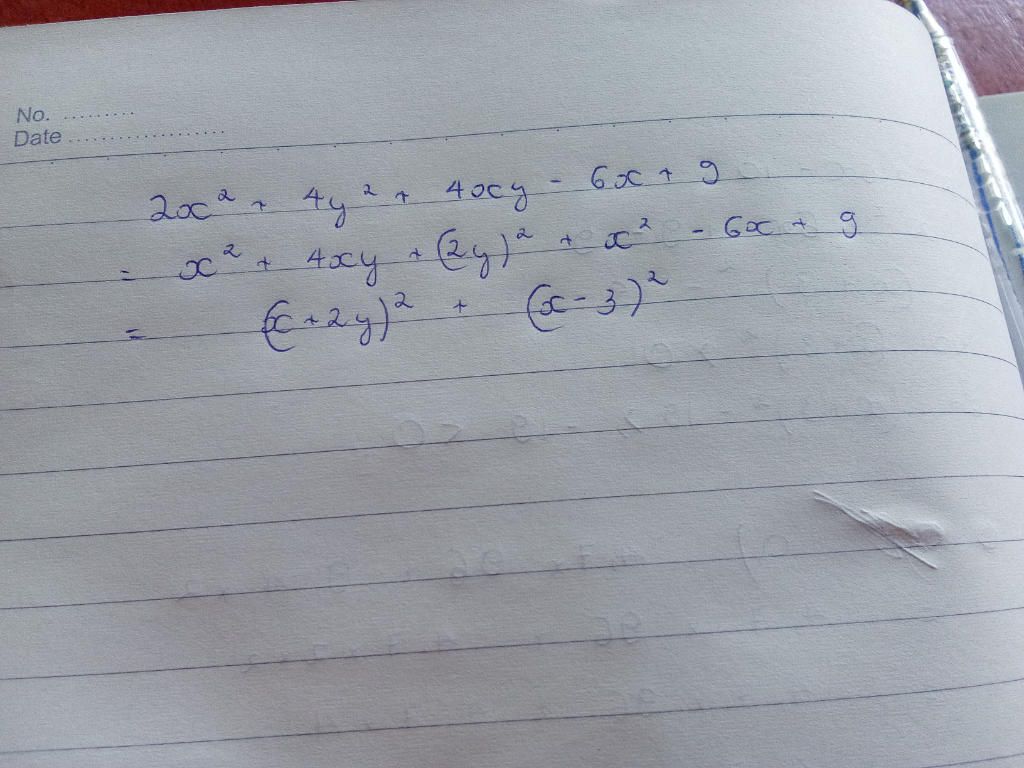 No. .........
Date ...................
2x² + 4y² + 4xy - 6x + 9
= x² + 4xy + (2y)² + x² - 6x + 9
= (x + 2y)² + (x - 3)²